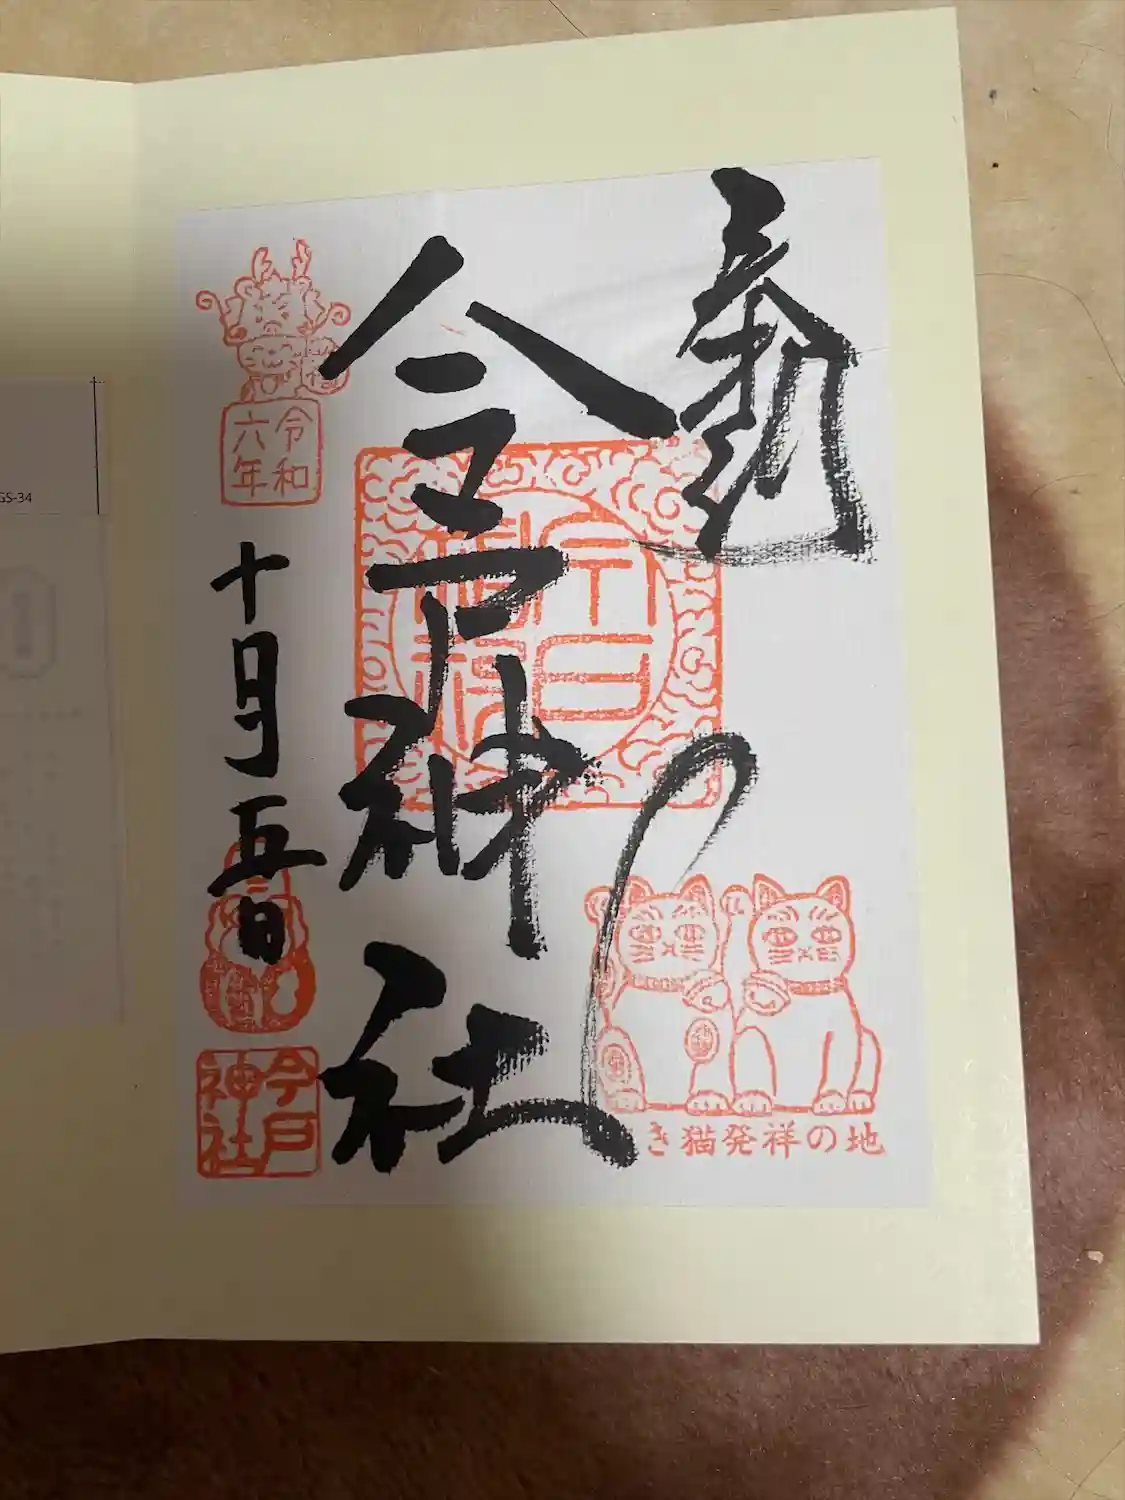 奉拝
今戸神社
令和
六年
十月五日
今戸
神社
き猫発祥の地
GS-34